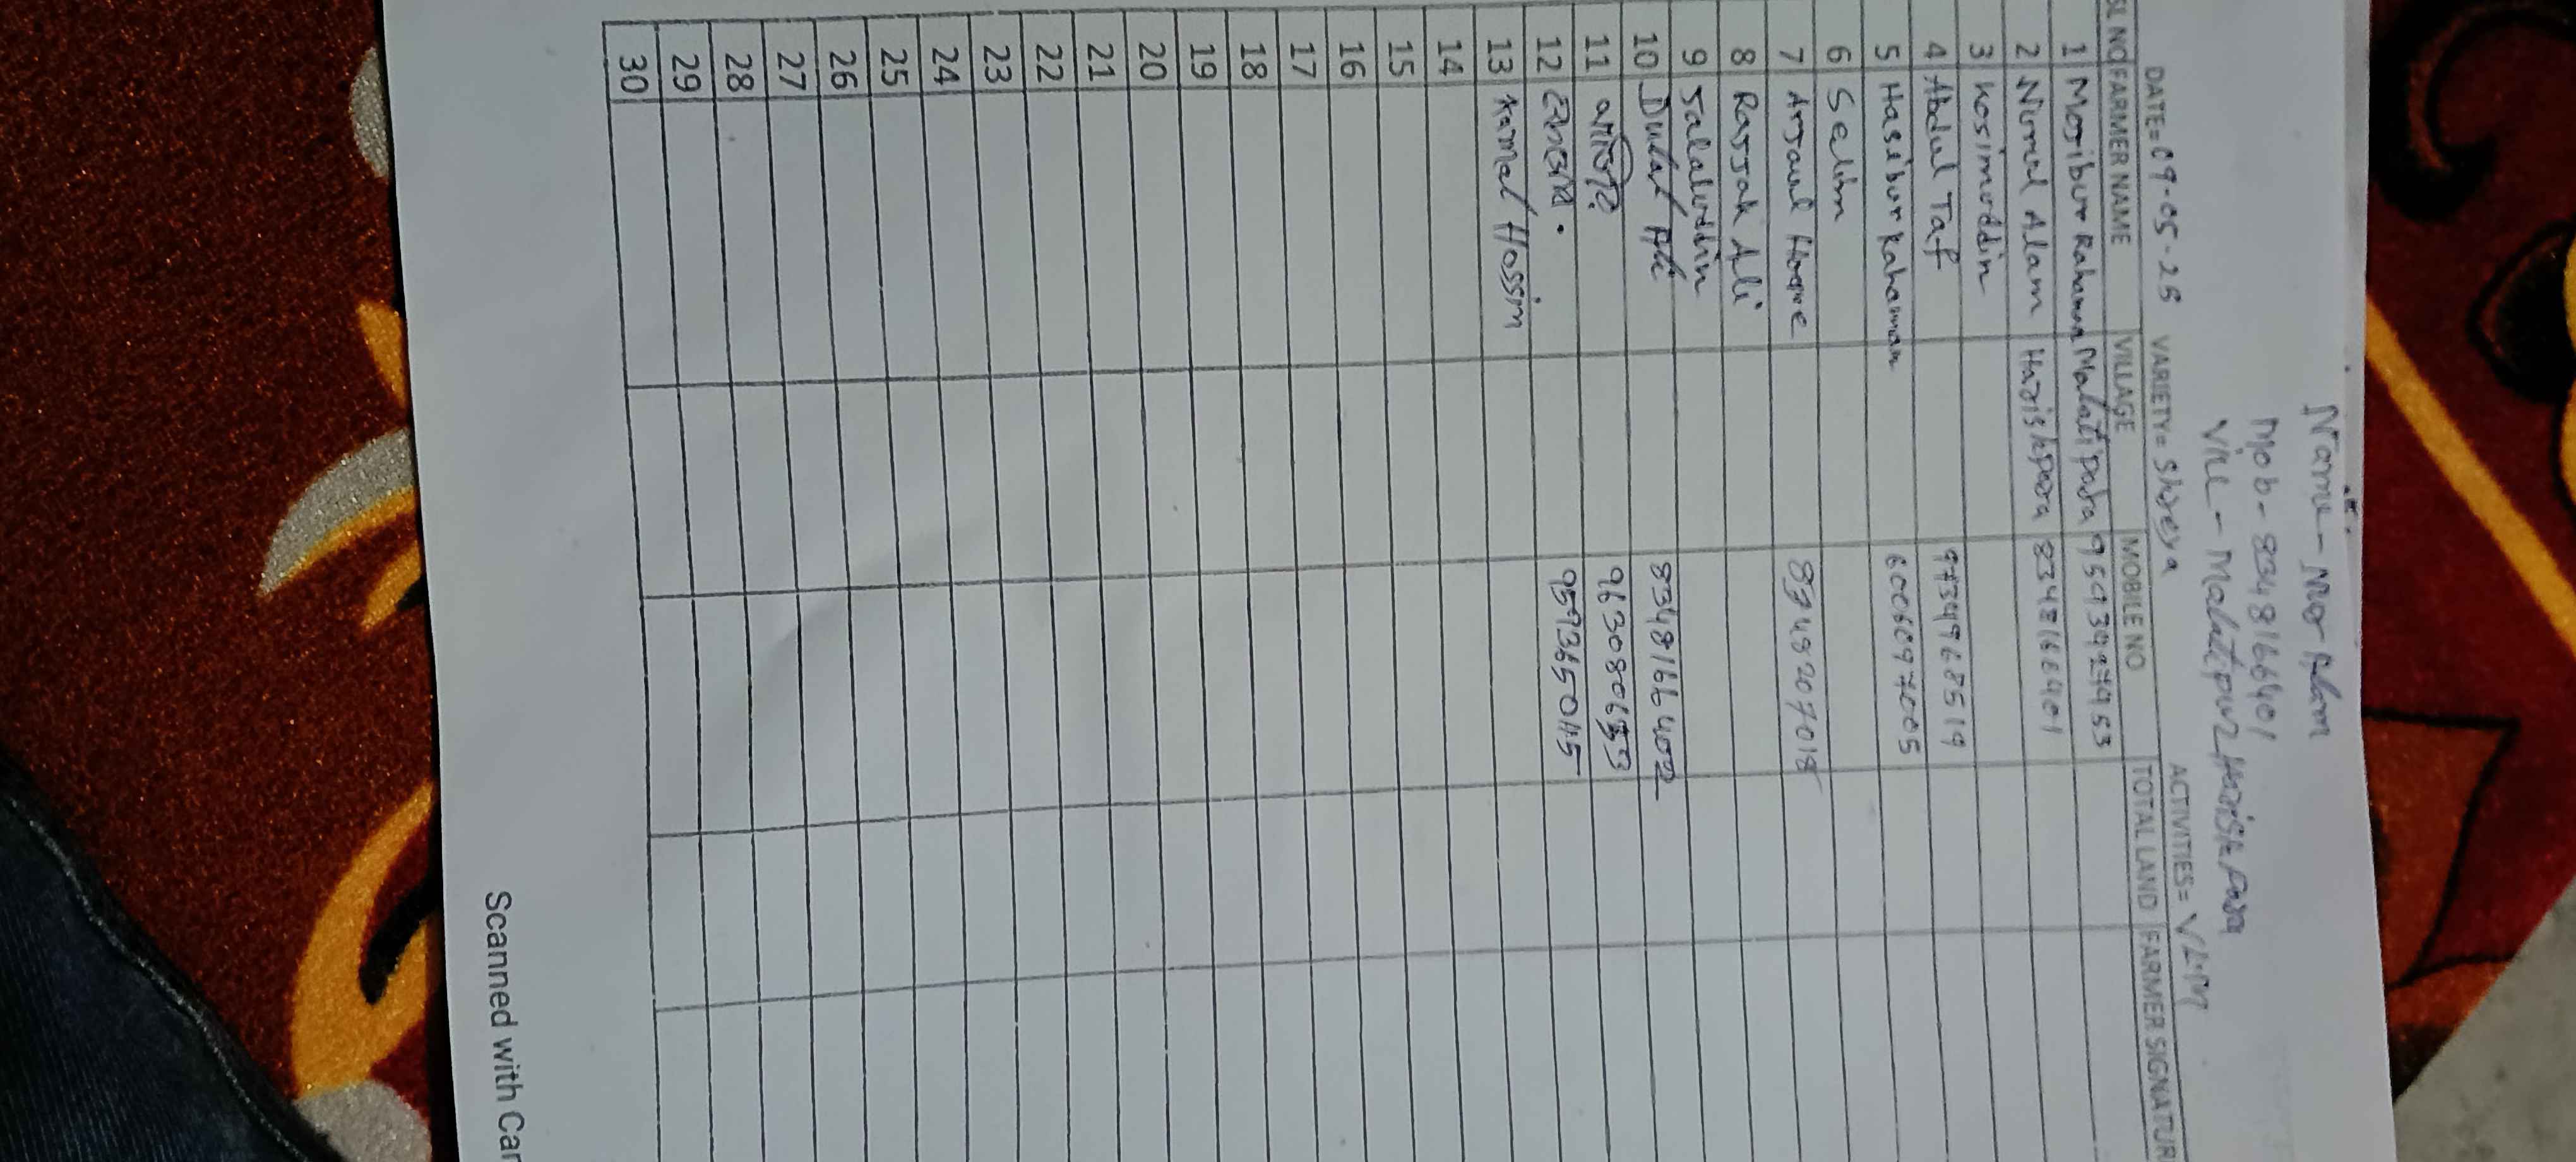 Name - Nur Alam
Mob - 8348166401
Vill - Malatipur Harishpara
DATE= 09-05-25 VARIETY= Shreya ACTIVITIES= VLM
SL NO FARMER NAME VILLAGE MOBILE NO TOTAL LAND FARMER SIGNATUR
1 Mosibur Rahaman Malatipara
2 Nurul Alam Harishpara 8348166401
3 Kosimuddin
4 Abdul Taf 9734968519
5 Hasibur Rahaman 6006097005
6 Selim
7 Arsaul Hoque
8 Rassak Ali
9 Jalaluddin
10 Dulal Ali
11
12 9593650115
13 Kamal Hossim
14
15
16
17
18
19
20
21
22
23
24
25
26
27
28
29
30
Scanned with Car